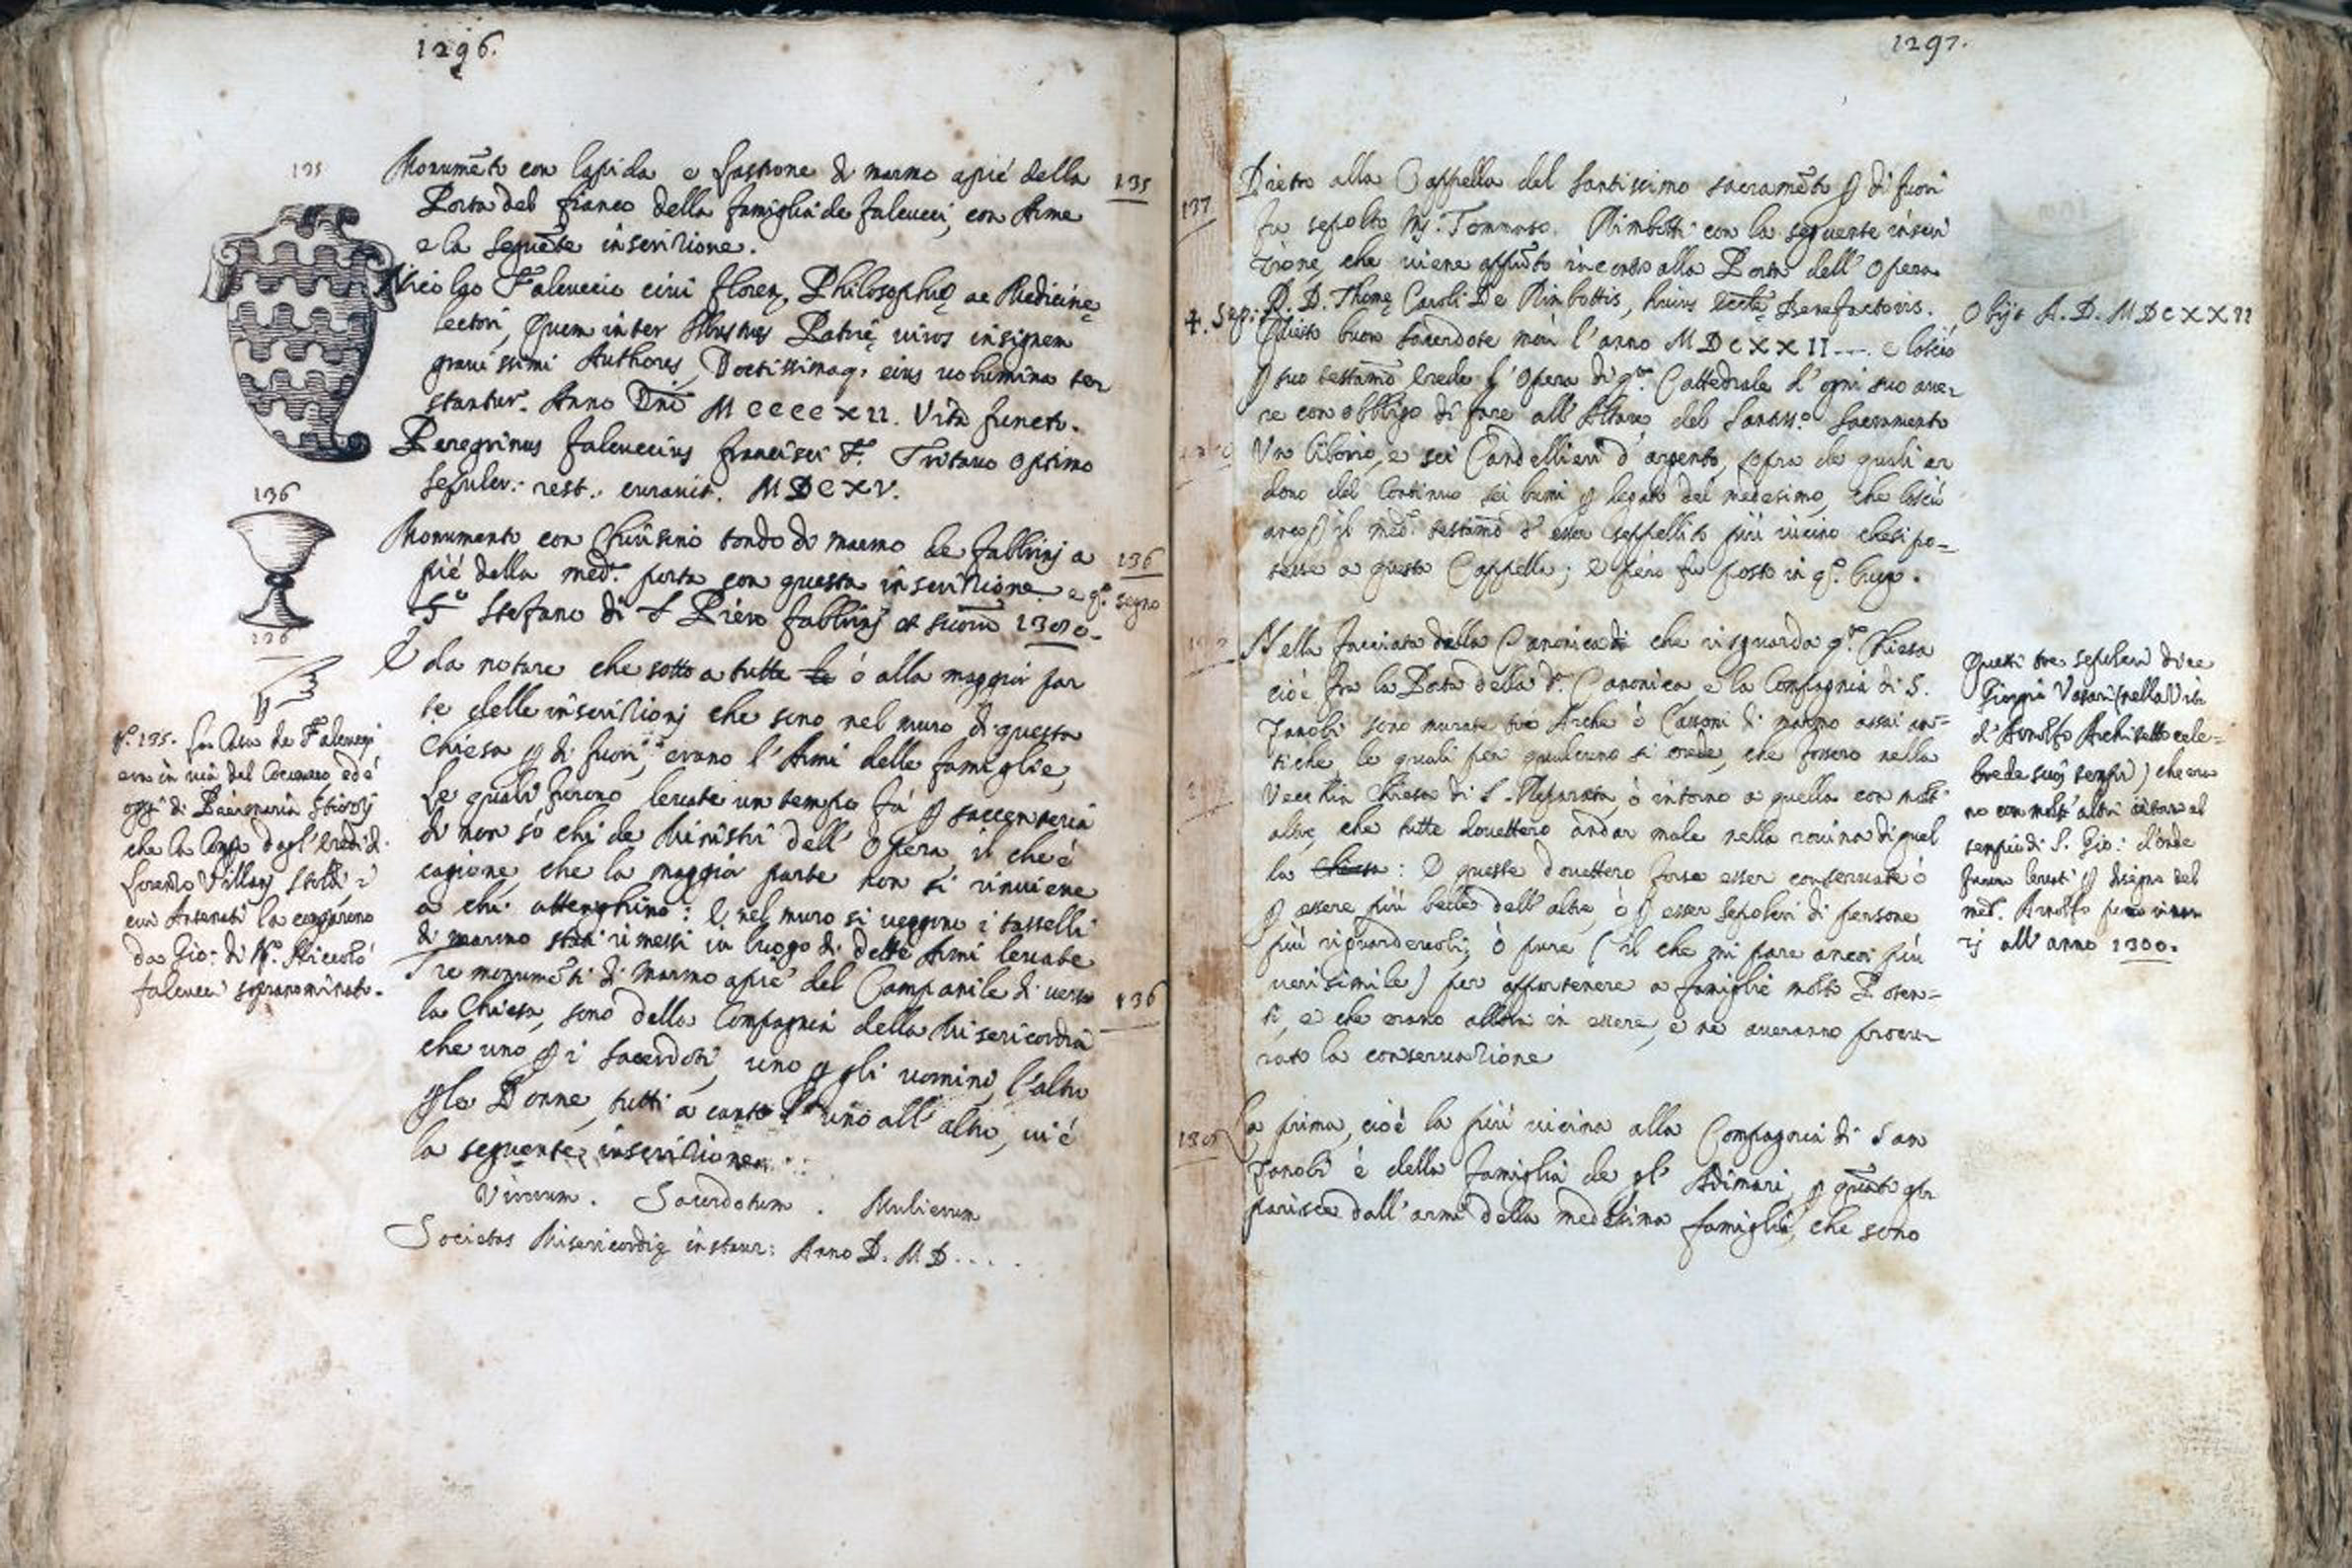 1296.
135
Monumēto con lapida e lastrone di marmo apié della
Porta del fianco della famiglia de Falcucci, con Arme
e la seguēte inscrizione.
135
Nicolao Falcuccio civi floren. Philosophię ac Medicinę
lectori, Quem inter Illustres Patrię viros insignem
gravissimi Authores, Doctissimaq. eius volumina tes
stantur. Anno Dnī MCCCCXII. Vita functo.
Peregrinus Falcuccius Francisci F. Tritavo Optimo
sepulcr: rest.: curavit. MDCXV.
136
Monumento con Chiusino tondo di marmo de Fabbrinj a
pié della med.ª porta con questa inscrizione e q.º segno
136
Sº Stefano di S Piero Fabbrinj et suorū 1380.
136
È da notare che sotto a tutte le ò alla maggior par
te delle inscrizionj che sono nel muro di questa
Chiesa p di fuori, erano l'Armi delle famiglie,
le quali furono levate un tempo fà p saccenteria
di non sò chi de Ministri dell'Opera, il che è
cagione, che la maggior parte non si rinviene
a chi attenghino: E nel muro si veggono i tasselli
di marmo stati rimessi in luogo di dette Armi levate
Tre monumēti di Marmo apié del Campanile di verso
136
la Chiesa, sono della Compagnia della Misericordia
che uno p i sacerdoti, uno p gli uomini, l'altro
p le Donne, tutti a canto l'uno all'altro, vi è
la seguente inscrizione
Virorum. Sacerdotum. Mulierum
Societas Misericordię instaur: Anno D. M D....
Nº. 135. La Casa de Falcucci
era in via del Cocomero ed è
oggi di
che la dagl'Eredi di
Lorenzo Villanj Stoldi i
cui Antenati la comperono
da Gio: di Mº. Niccolò
Falcucci sopranominato.
1297.
137
Dietro alla Cappella del Santissimo Sacramēto p di fuori
fu sepolto Mſ. Tommaso Rimbotti con la seguente inscri
zione, che viene appūto incontro alla Porta dell'Opera
✝. Sep: R. D. Thomę Caroli De Rimbottis, huius Eccłę Benefactoris. Obijt A. D. MDCXXII
Questo buon Sacerdote morì l'anno MDCXXII --. e lasciò
p suo testamō Erede l'Opera di q.ta Cattedrale d'ogni suo ave
re con obbligo di fare all'Altare del Santiss.º Sacramento
Un Ciborio, e sei Candellieri d'argento, sopra de quali ar
dono del continuo sei lumi p legato del medesimo, che lasciò
anco p il med.º testamō d'esser seppellito più vicino che si po=
tesse a questa Cappella; e però fu posto in q.º luogo.
Nella facciata della Canonica di che risguarda q.ta Chiesa
cioè fra la Porta della d.ª Canonica e la Compagnia di S.
Zanobi sono murate tre Arche ò Cassoni di marmo assai an=
tiche le quali per qualcuno si crede, che fossero nella
Vecchia Chiesa di S. Reparata, ò intorno a quella con molt'
altre, che tutte dovettero andar male nella rovina di quel
la Chiesa: E queste dovettero forse esser conservate ò
p essere più belle dell'altre, ò p esser Sepolcri di persone
più riguardevoli; ò pure (il che mi pare ancor più
verisimile) per appartenere a famiglie molto Poten=
ti, e che erano allora in essere, e ne averanno procu
rato la conservazione
Questi tre sepolcri dice
Giorgio Vasari (nella Vita
d'Arnolfo Architetto cele=
bre de suoj tempi) che era
no con molt'altri intorno al
tempio di S. Gio: d'onde
furon levati p disegno del
med.º Arnolfo
all'anno 1300.
La prima, cioè la più vicina alla Compagnia di San
Zanobi è della famiglia de gl'Adimari, p quāto ap
parisce dall'armi della medesima famiglia, che sono